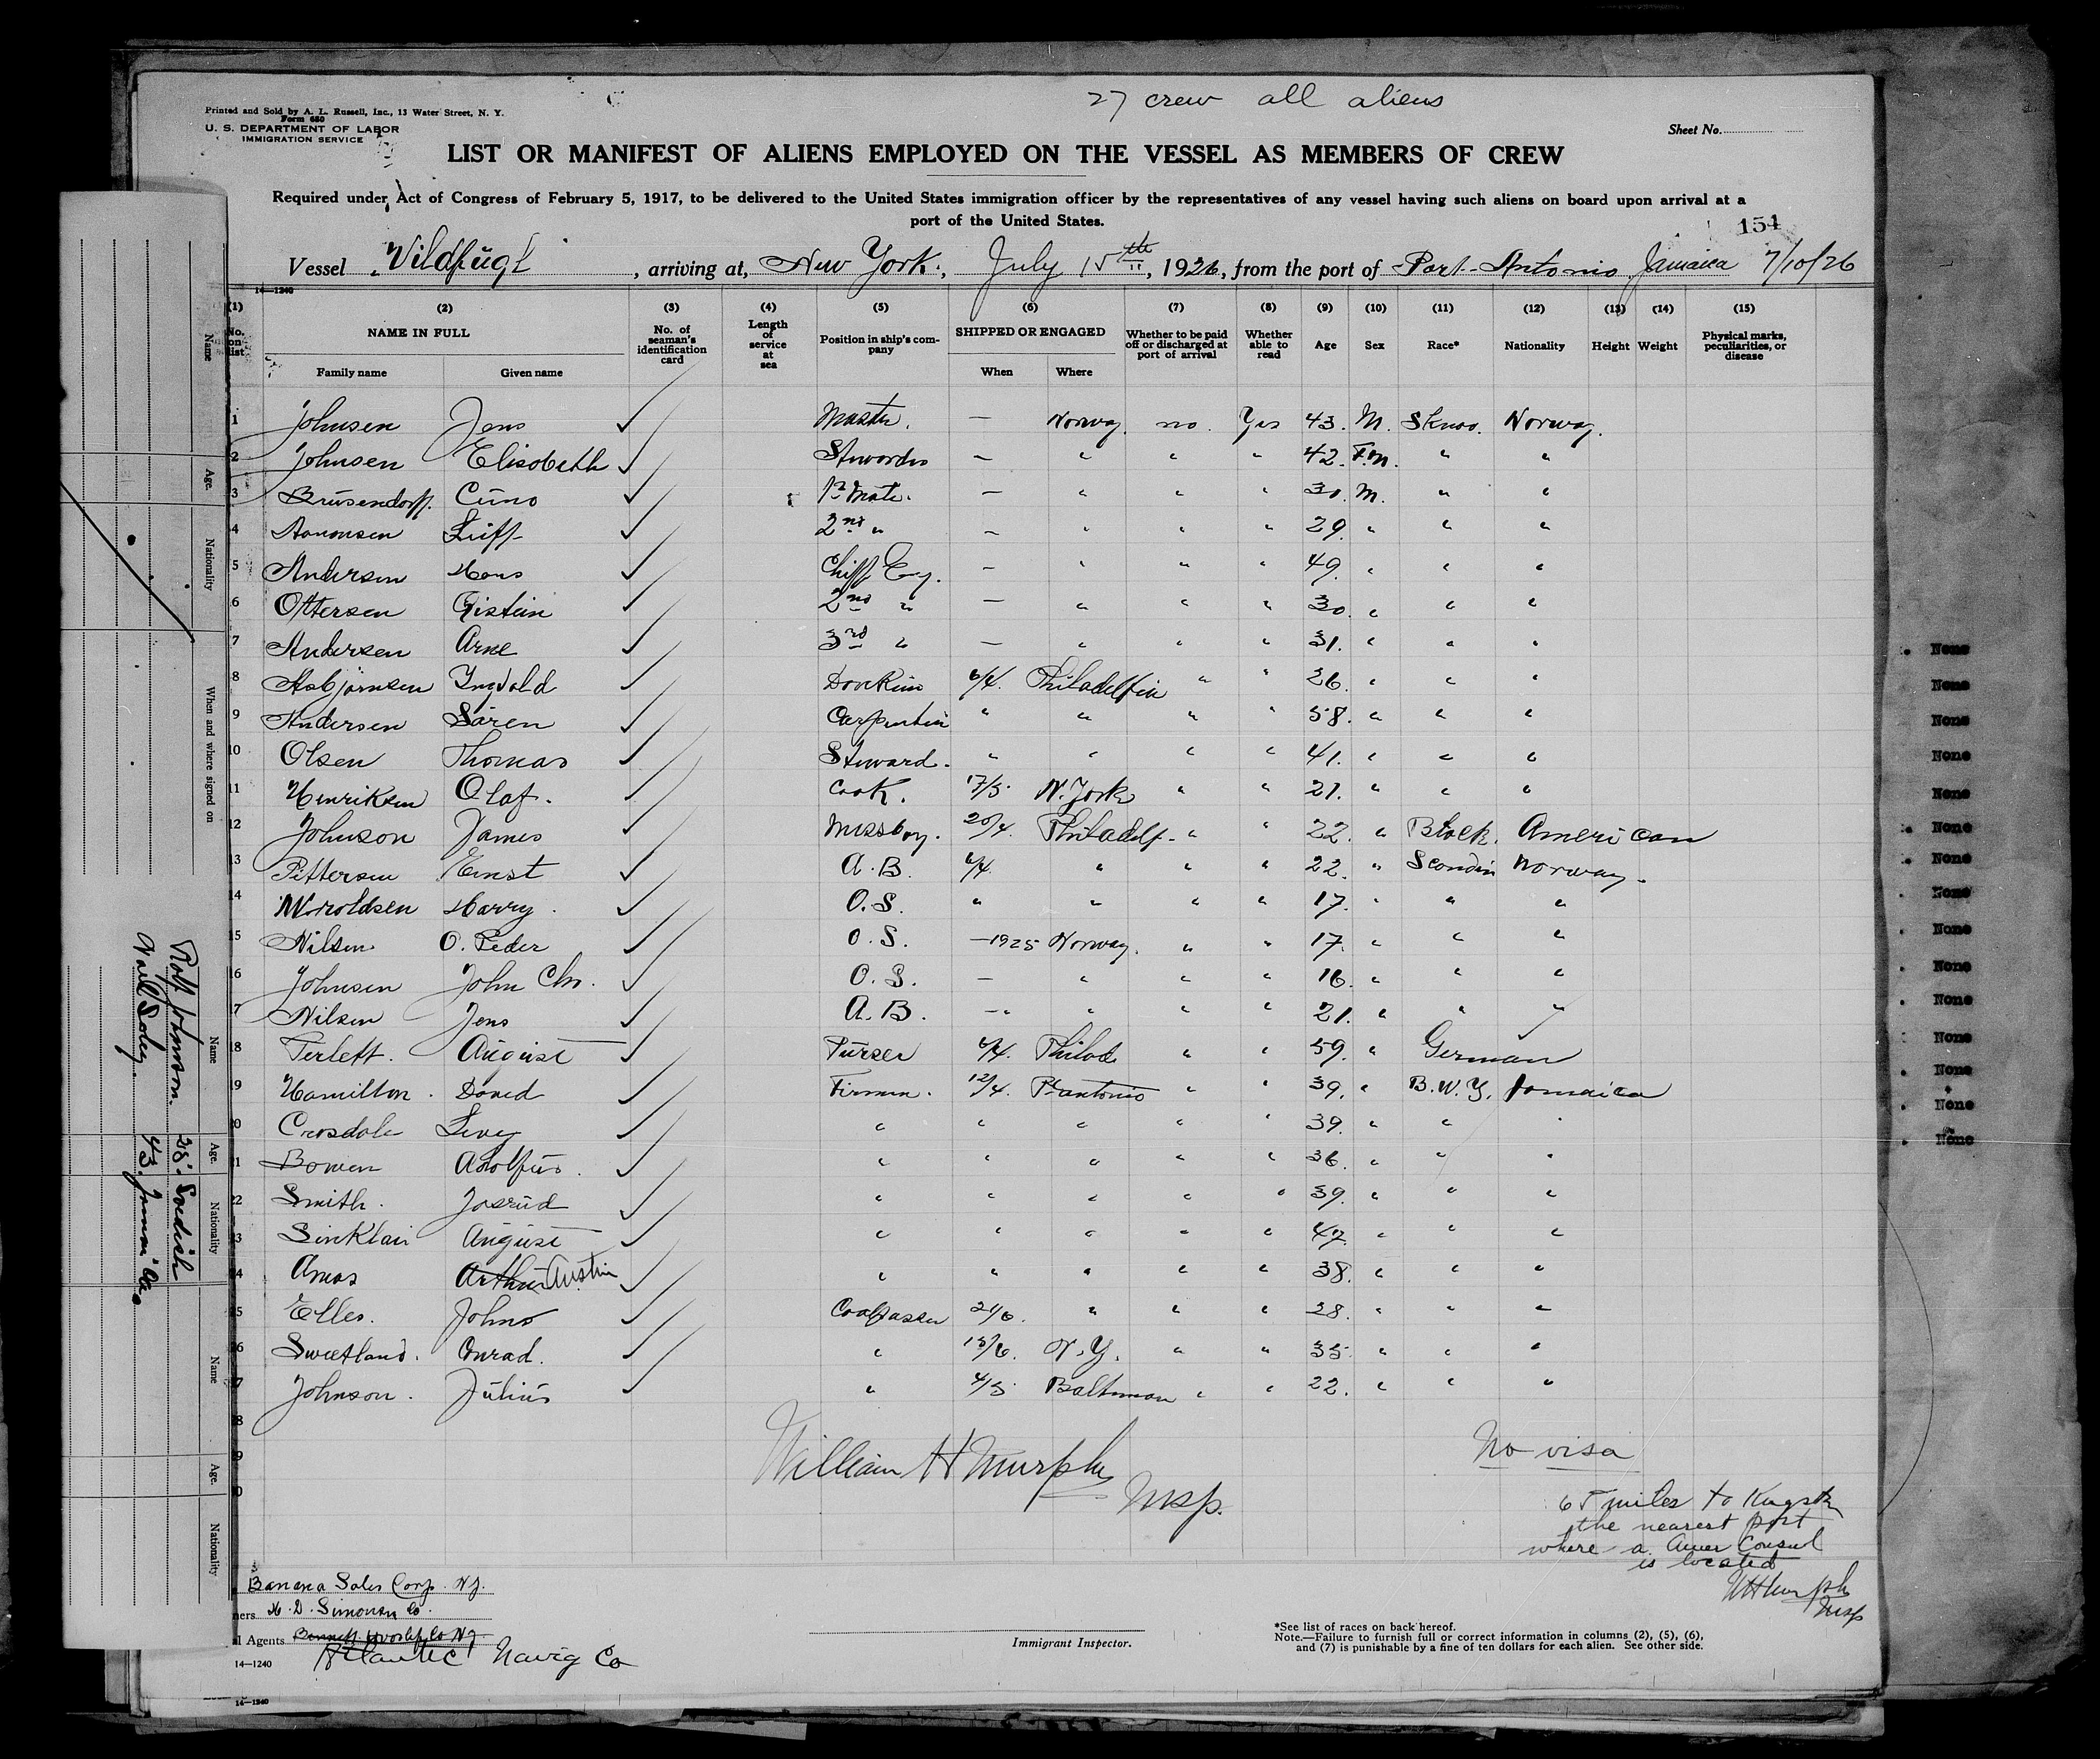 27 crew all aliens
Printed and Sold by A. L. Russell, Inc., 13 Water Street, N. Y.
Form 680
U. S. DEPARTMENT OF LABOR
IMMIGRATION SERVICE
Sheet No.
LIST OR MANIFEST OF ALIENS EMPLOYED ON THE VESSEL AS MEMBERS OF CREW
Required under Act of Congress of February 5, 1917, to be delivered to the United States immigration officer by the representatives of any vessel having such aliens on board upon arrival at a
port of the United States.
154
Vessel Vildfugl, arriving at, New York, July 15th, 1926, from the port of Port Antonio Jamaica 7/10/26
14—1240
(1) (2) (3) (4) (5) (6) (7) (8) (9) (10) (11) (12) (13) (14) (15)
No. on list NAME IN FULL No. of seaman's identification card Length of service at sea Position in ship's company SHIPPED OR ENGAGED Whether to be paid off or discharged at port of arrival Whether able to read Age Sex Race* Nationality Height Weight Physical marks, peculiarities, or disease
Family name Given name When Where
1 Johnsen Jens ✓ Master. — Norway. no. Yes 43. M. Norway.
2 Johnsen Elisabeth ✓ — " " " 42. " "
3 Brusendorff. Cuno ✓ 1st Mate. — " " " 30. M. " "
4 Leiff ✓ 2nd " — " " " 29. " " "
5 Andersen Hans ✓ Chiff Eng. — " " " 49. " " "
6 Ottersen ✓ 2nd " — " " " 30. " " "
7 Andersen Arne ✓ 3rd " — " " " 31. " " "
8 Asbjörnsen Ingvald ✓ 6/4. Philadelfia " " 26. " " "
9 Andersen Sören ✓ " " " " 58. " " "
10 Olsen Thomas ✓ Steward. " " " " 41. " " "
11 Henriksen Olaf. ✓ Cook. 17/5. N. York " " 21. " " "
12 Johnson James ✓ Messboy. 20/4. Philadelf. " " 22. " Black. American
13 Pettersen Ernst ✓ A.B. 6/4. " " " 22. " Scandin Norway.
14 Harry. ✓ O.S. " " " " 17. " " "
15 Nilsen. O. Peder ✓ O.S. —1925 Norway. " " 17. " " "
16 Johnsen John Chr. ✓ O.S. — " " " 16. " " "
17 Nilsen Jens ✓ A.B. — " " " 21. " " "
18 August ✓ 6/4. Philad " " 59. " German
19 Hamilton. David ✓ Firemen. 12/4. Pt antonio " " 39. " B.W.I. Jamaica
20 Crosdale Levy ✓ " " " " " 39. " " "
21 Bowen Adolfus. ✓ " " " " " 36. " " "
22 Smith. ✓ " " " " " 39. " " "
23 Sinklair August ✓ " " " " " 47. " " "
24 Amos Arthur Austin ✓ " " " " " 38. " " "
25 Elles. Johns ✓ Coalpasser 21/6. " " " 28. " " "
26 Sweetland. Conrad. ✓ " 15/6. N.Y. " " 35. " " "
27 Johnson. Julius ✓ " 4/5. Baltimore " " 22. " " "
28
29
30
William H Murphy
Insp.
No visa
65 miles to Kingston
the nearest port
where a Amer Consul
is located
WHMurphy
Insp
Banana Sales Corp. N.Y.
ners H. D. Simonsen Co.
l Agents
Atlantic Navig Co
Immigrant Inspector.
*See list of races on back hereof.
Note.—Failure to furnish full or correct information in columns (2), (5), (6),
and (7) is punishable by a fine of ten dollars for each alien. See other side.
14—1240
14—1240
Name Age. Nationality When and where signed on
Name Age. Nationality
Rolf Johnson. 28.
43.
Name Age. Nationality
None
None
None
None
None
None
None
None
None
None
None
None
None
None
None